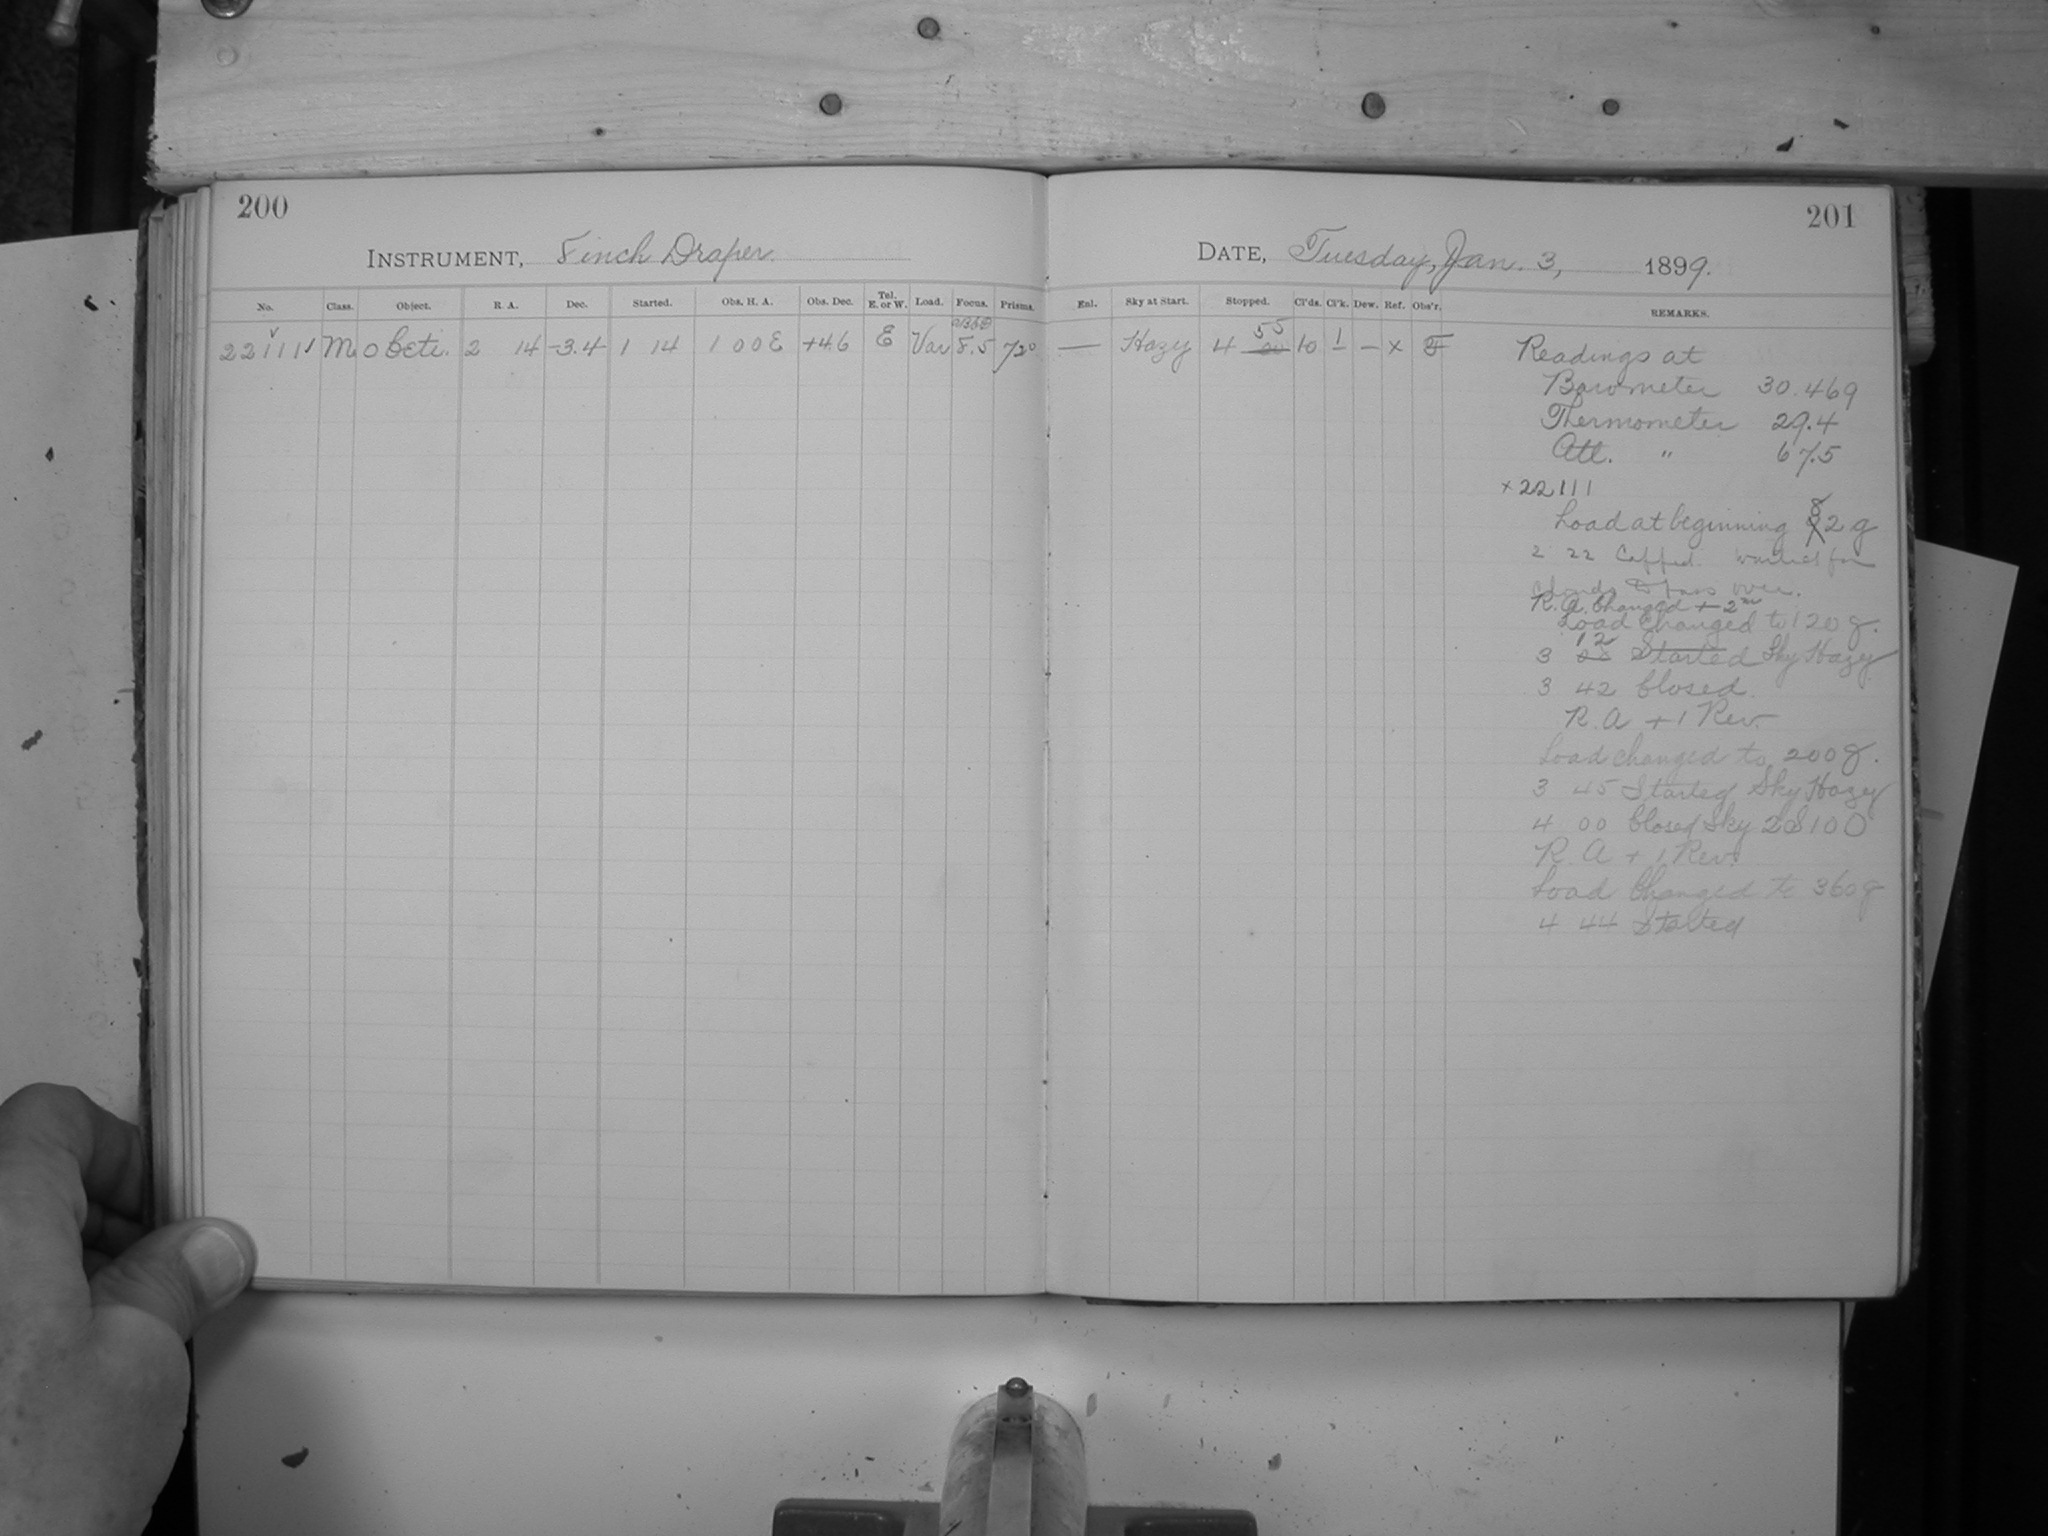 200
201
INSTRUMENT, 8 inch Draper.
DATE, Tuesday, Jan. 3, 1899.
No. Class. Object. R. A. Dec. Started. Obs. H. A. Obs. Dec. Tel. E. or W. Load. Focus. Prisms.
Enl. Sky at Start. Stopped. Cl'ds. Cl'k. Dew. Ref. Obs'r. REMARKS.
22111 M o Ceti. 2 14 -3.4 1 14 1 00 E +4.6 E Var 8.5 72°
— Hazy 4 55 10 1 — x
Readings at
Barometer 30.469
Thermometer 29.4
Att. " 67.5
x 22111
Load at beginning 82 g
2 22 Capped. Waited for
clouds to pass over.
R.A. Changed + 2m
Load Changed to 120 g.
3 12 Started Sky Hazy
3 42 Closed.
R.A +1 Rev.
Load changed to 200 g.
3 45 Started Sky Hazy
4 00 Closed Sky 2S10O
R. A + 1 Rev.
Load Changed to 360 g
4 44 Started